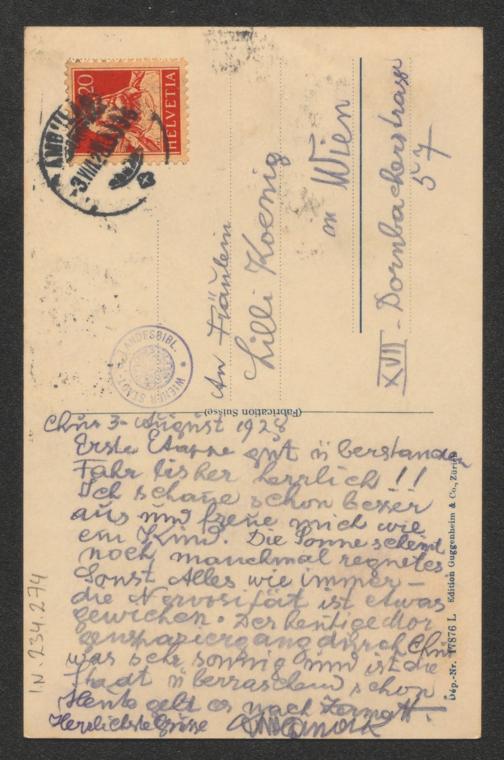 20
HELVETIA
AMBULANT
3.VIII.28
An Fräulein
Lilli Koenig
in Wien
XVII - Dornbacherstrasse
57
WIENER STADT-
LANDESBIBL.
(Fabrication Suisse)
Chur 3. August 1928
Erste Etappe gut überstanden
Fahr bisher herrlich!!
Ich schaue schon besser
aus und freue mich wie
ein Kind. Die Sonne scheint
noch manchmal regnet es
Sonst Alles wie immer -
die Nervosität ist etwas
gewichen. Der heutige Mor
genspaziergang durch Chur
was sehr sonnig und ist die
Stadt überraschend schön
Heute geht es nach Zermatt.
Herzlichste Grüsse
Dép.-Nr. 17876 L Edition Guggenheim & Co., Zürich
IN 234.274